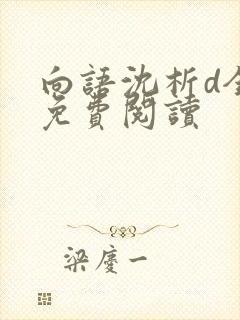 向語沈析d全
免費閱讀
梁慶一